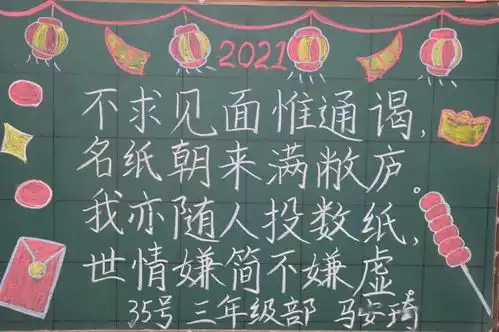 2021
不求见面惟通谒，
名纸朝来满敝庐。
我亦随人投数纸，
世情嫌简不嫌虚
35号 三年级部 马安琦